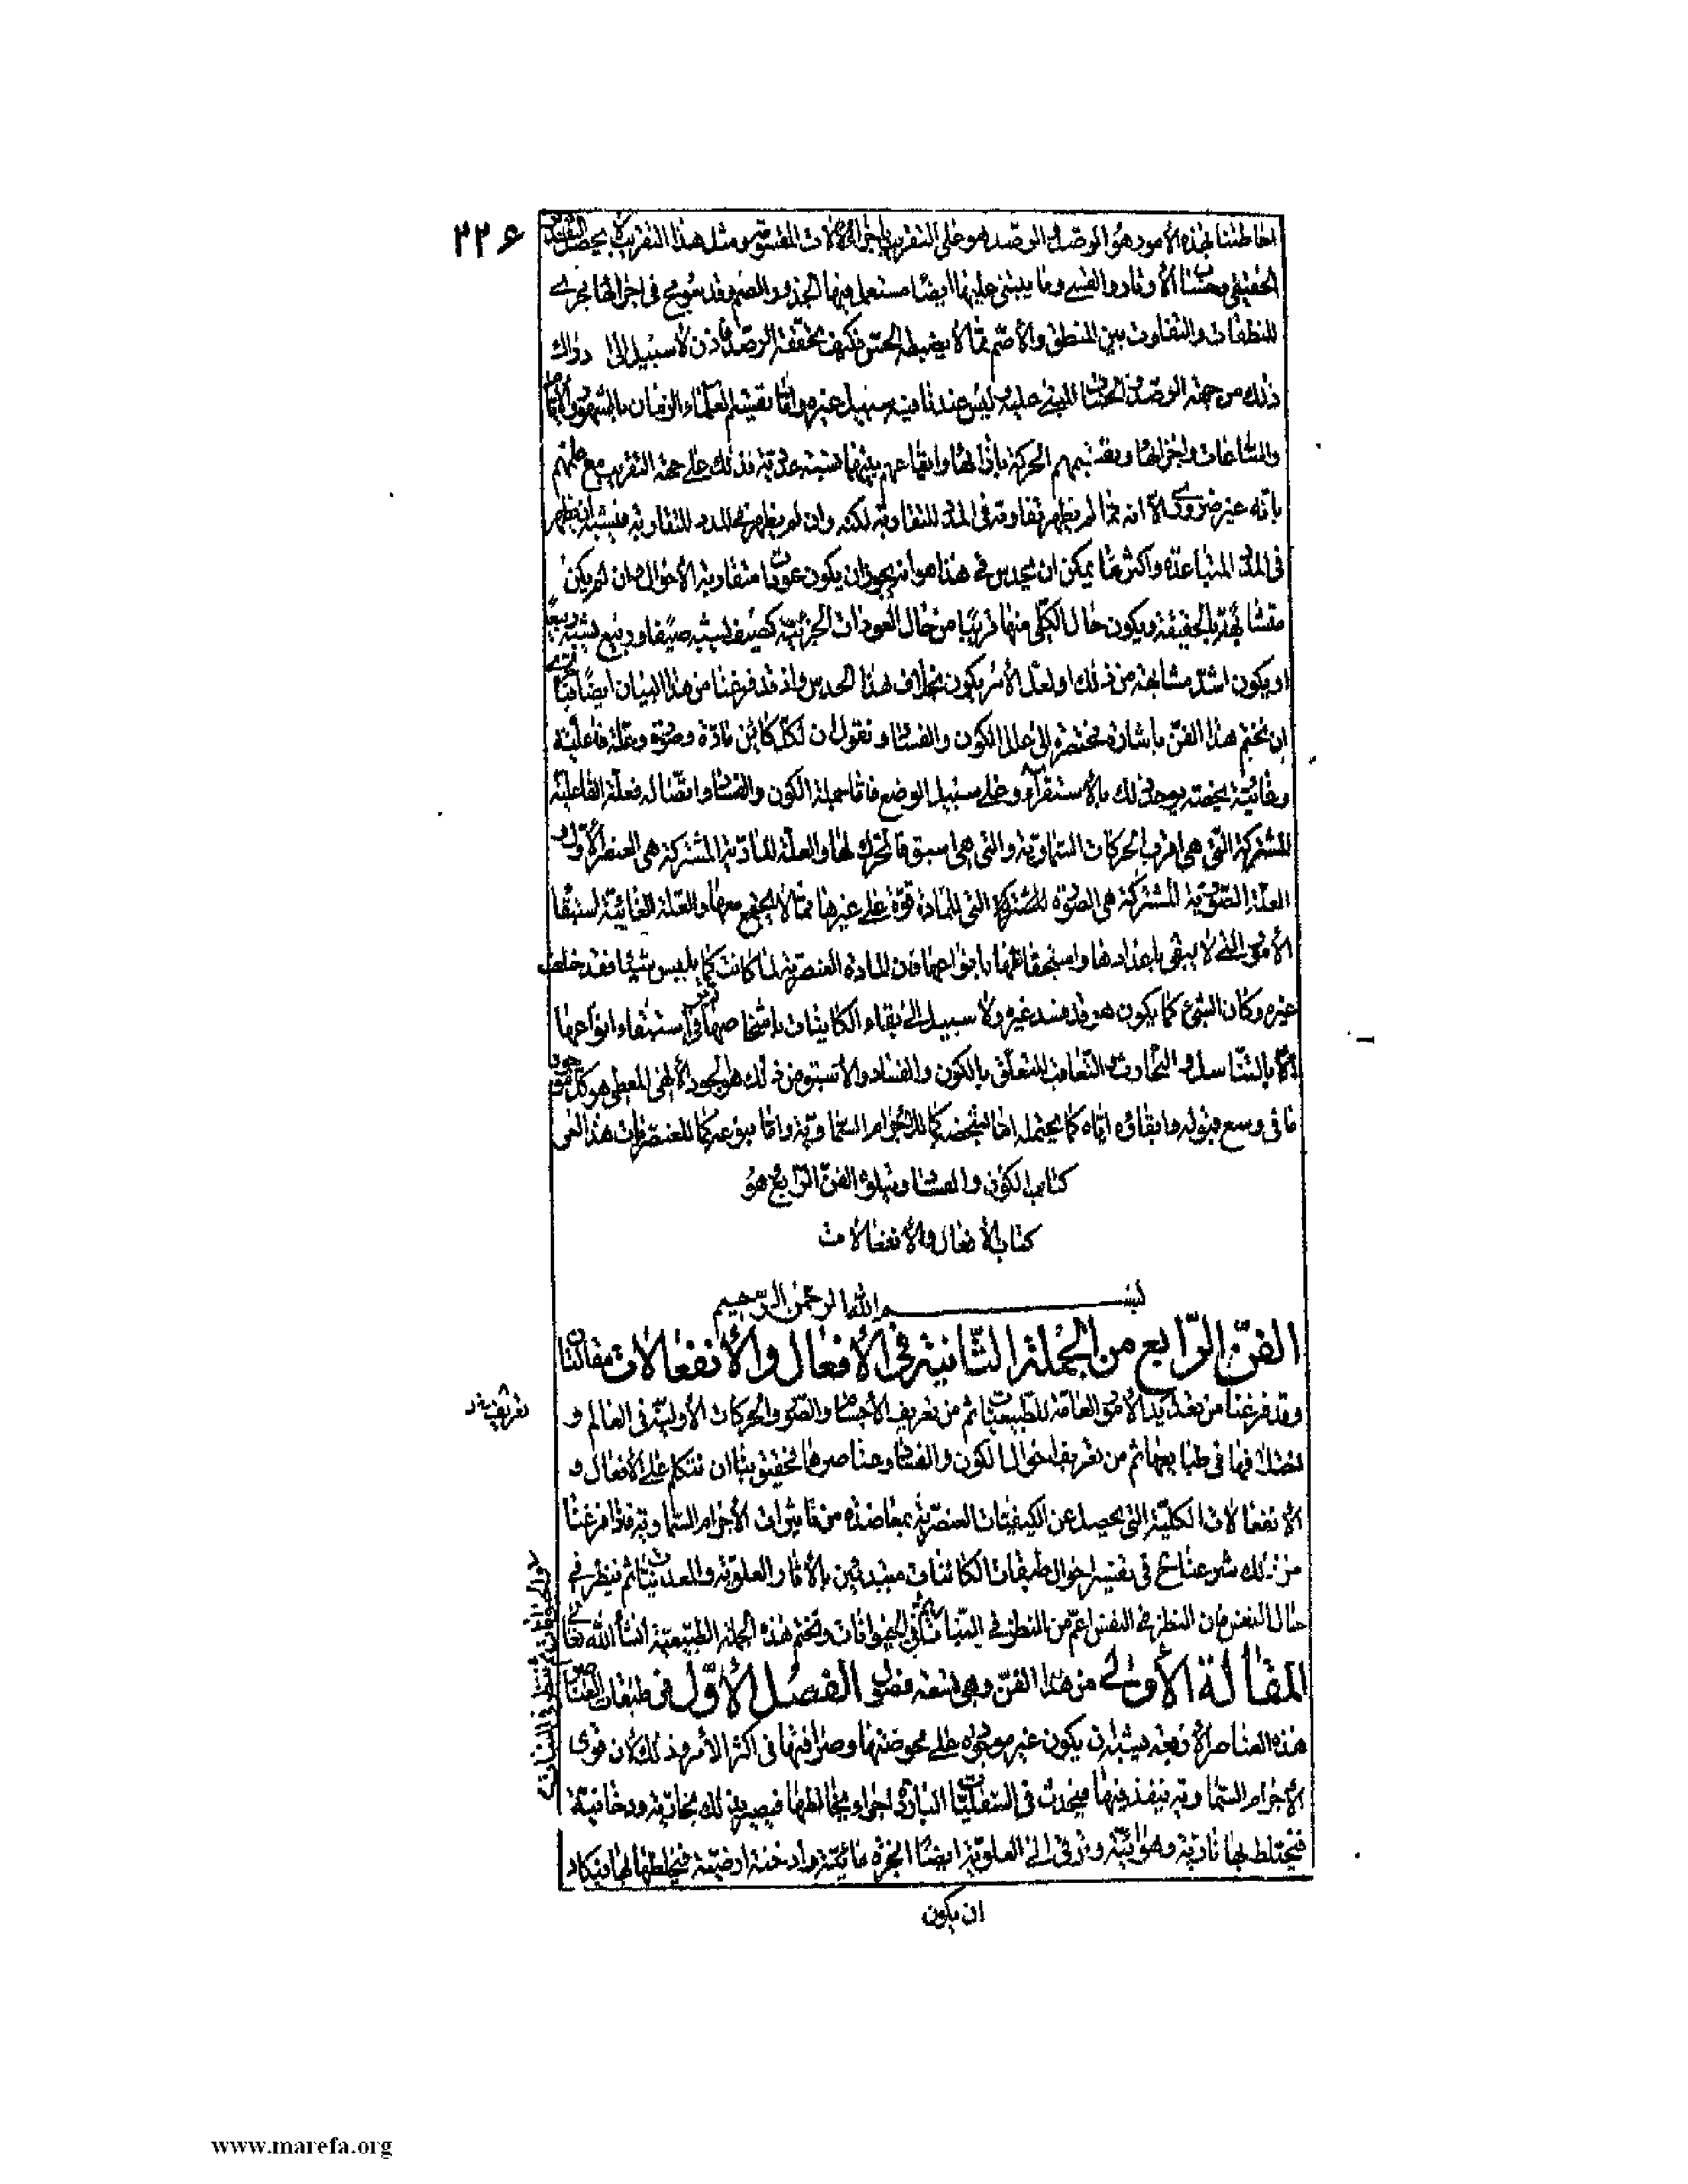 ٢٢۶
احاطتنا بهذه الأمور هو الرصد والرصد هو على التقريب باجزاء الالات المقسومة ومثل هذا التقريب لا يحصل التقدير
الحقيقى وحساب الأوتار والقسى وما يبتنى عليها ايضًا مستعمل فيها الجذور الصم وقد سومح فى اجزائها مجرى
المنطقات والتفاوت بين المنطق والأصم مما لا يضبطه الحس فكيف يحققه الرصد فاذن لا سبيل الى ادراك
ذلك من جهة الرصد والحساب المبنى عليه وليس عندنا فيه سبيل غيره واما تقسيم العلماء الزمان بالشهور والأيام
والساعات واجزائها وتقسيمهم الحركة بازائها وايقاعهم بينهما نسبة عددية فذلك على جهة التقريب مع علمهم
بانه غير ضرورى الا انه مما لم يظهر تفاوته فى المدد المتقاربة لكنه وان لم يظهر فى المدد المتقاربة فيشبه ان يظهر
فى المدد المتباعدة واكثر ما يمكن ان يحدس فى هذا هو انه يجوز ان يكون عودات متقاربة الأحوال وان لم يكن
متشابهة بالحقيقة ويكون حال الكلى منها قريبًا من حال العودات الجزئية كصيف يشبه صيفا وربيع يشبه ربيعًا
او يكون اشد مشابهة من ذلك او لعل الأمر يكون بخلاف هذا الحدس واذ قد فرغنا من هذا البيان ايضًا فبنا
ان نختم هذا الفن باشارة مختصرة الى علل الكون والفساد ونقول ان لكل كائن مادة وصورة وعلة فاعلية
وغائية يخصه يوجد ذلك بالأستقراء وعلى سبيل الوضع فاما جملة الكون والفساد واتصاله فعلته الفاعلية
المشتركة التى هى اقرب الحركات السماوية والتى هى اسبق فالمحرك لها والعلة المادية المشتركة هى العنصر الأول و
العلة الصورية المشتركة هى الصورة المشتركة التى للمادة قوة على غيرها مما لا يجتمع معها والعلة الغائية استبقاء
الأمور التى لا يبقى باعدادها واستحفاظها بانواعها فان المادة العنصرية لما كانت كما يلبس شيئا فقد خلعت
غيره وكان الشىء كما يكون هو قد فسد غيره ولا سبيل الى بقاء الكائنات باشخاصها فى استبقاء انواعها
الا بالتناسل والتحارث والتعاقب المتعلق بالكون والفساد والأسبق من ذلك هو الجود الألهى المعطى هو كل موجود
ما فى وسع قبوله وابقاؤه اياه كما يحتمله اما بشخصه كما للأجرام السماوية واما بنوعه كما للعنصريات هذا الفن
كتاب الكون والفساد ويتلوه الفن الرابع هو
كتاب الافعال والأنفعالات
بسم الله الرحمن الرحيم
الفن الرابع من الجملة الثانية فى الأفعال والأنفعالات مقالتان
وقد فرغنا من تعديد الأمور العامة للطبيعيات ثم من تعريف الأجسام والصور والحركات الأولية فى العالم و
اختلافها فى طبايعها ثم من تعريف احوال الكون والفساد وعناصرها فحقيق بنا ان نتكلم على الأفعال و
الأنفعالات الكلية التى يحصل عن الكيفيات العنصرية بمعاضدة من تاثيرات الأجرام السماوية فاذا فرغنا
من ذلك شرعنا ح فى تفسير احوال طبقات الكائنات مبتدئين بالأثار العلوية والمعدنيات ثم ننظر فى
حال النفس فان النظر فى النفس اعم من النظر فى النبات فى الحيوانات ونختم هذه الجملة الطبيعية انشأ الله تعالى
المقالة الأولى من هذا الفن وهى تسعة فصول الفصل الأول فى طبقات العناصر
هذه العناصر الأربعة يشبه ان يكون غير موجودة على محوضتها وصرافتها فى اكثر الأمر وذلك لأن قوى
الأجرام السماوية تنفذ فيها فيحدث فى السفليات الباردة اجزاء يخالطها فيصير بذلك بخارية ودخانية
فيختلط بها نارية وهوائية وترقى الى العلوية ايضًا ابخرة مائية وادخنة ارضية فيخلطها بها فيكاد
ان يكون